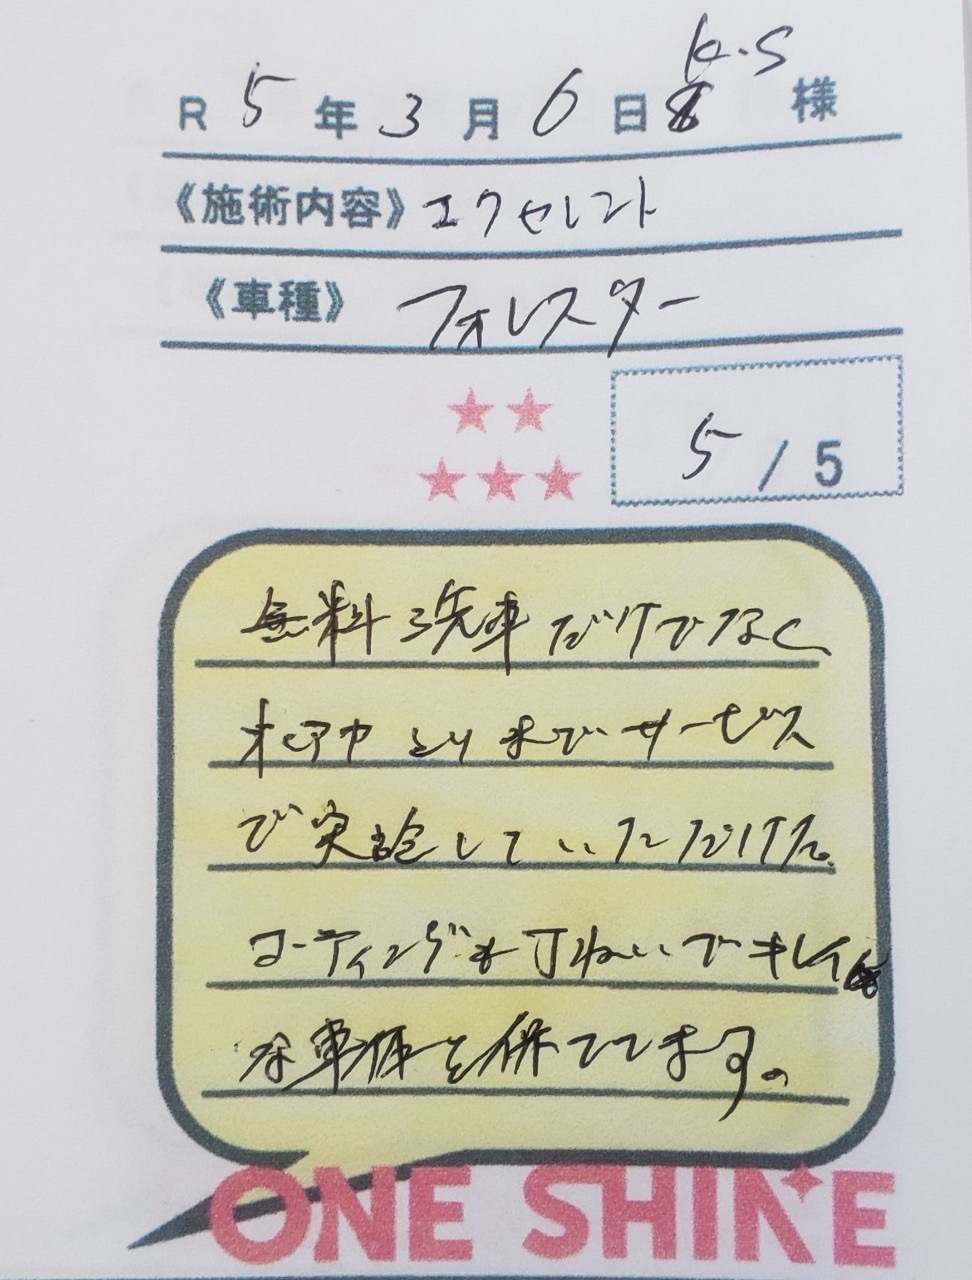 K.S
R 5年3月6日 様
《施術内容》エクセレント
《車種》フォレスター
★★
★★★
5/5
無料洗車だけでなく
オモアカとりまでサービス
で実施していただけた。
コーティングも丁ねいでキレイ
な車体を保ててます。
ONE SHINE